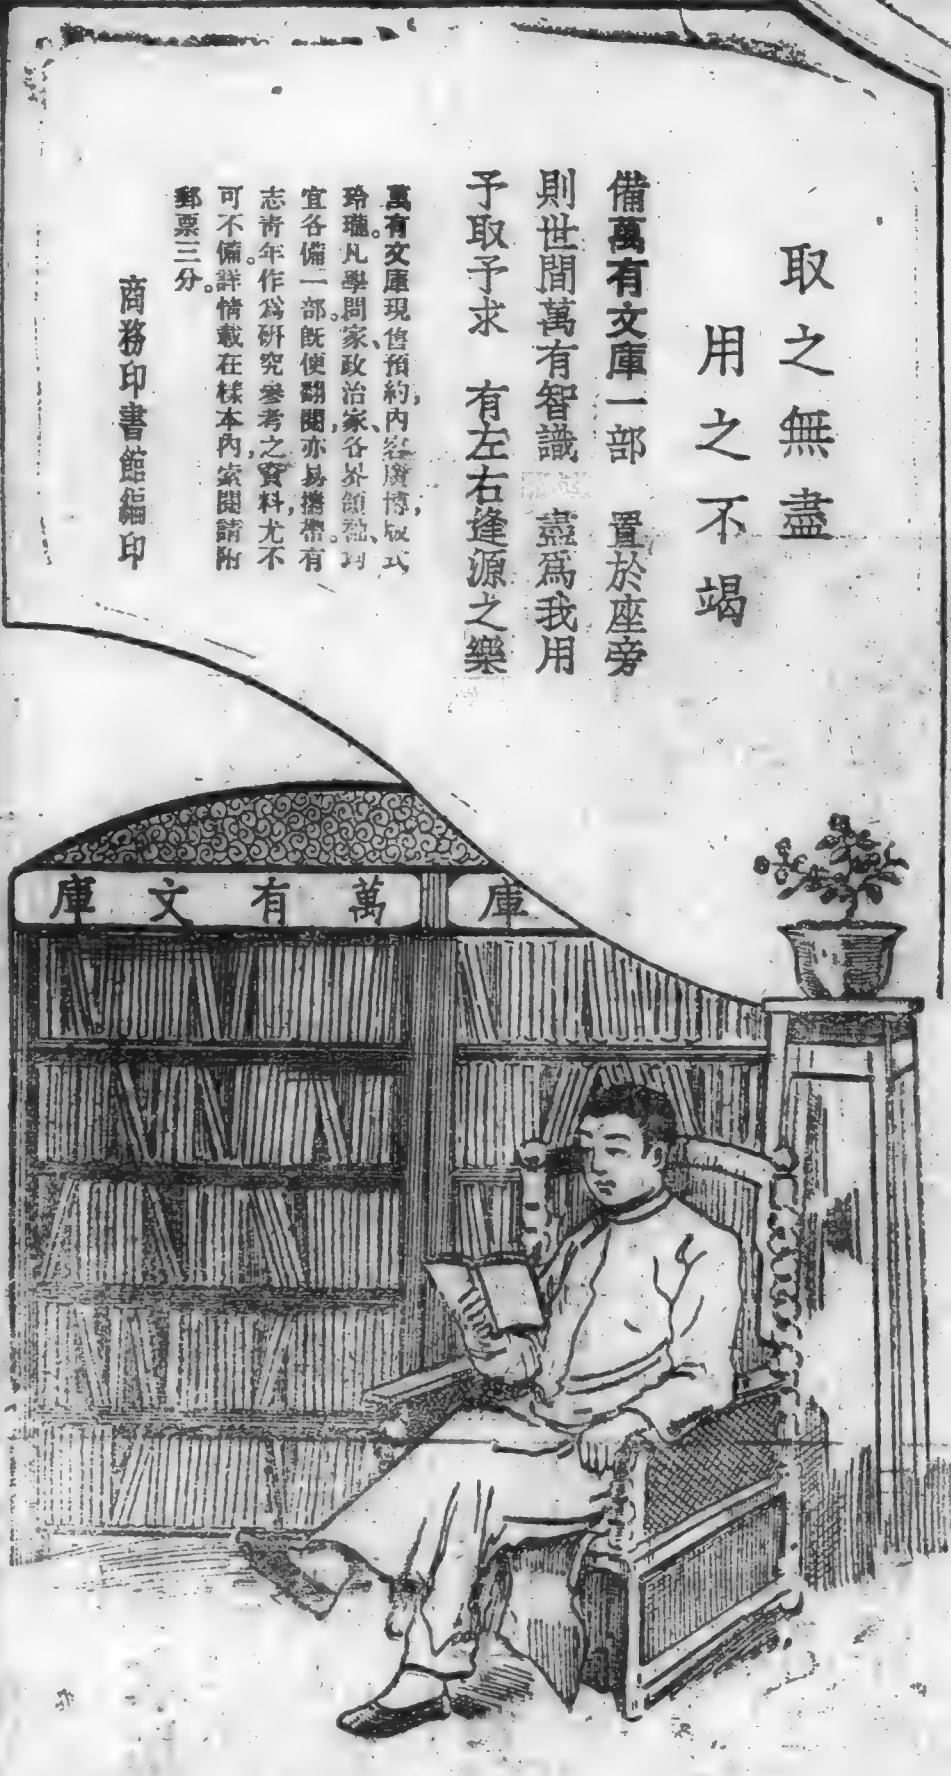 取之無盡
用之不竭
備萬有文庫一部　置於座旁
則世間萬有智識　盡爲我用
予取予求　有左右逢源之樂
萬有文庫現售預約，內容廣博，版式
玲瓏。凡學問家、政治家、各界領袖、均
宜各備一部。既便翻閱，亦易攜帶。有
志青年作爲研究參考之資料，尤不
可不備。詳情載在樣本內，索閱請附
郵票三分。
商務印書館編印
庫
萬有文庫